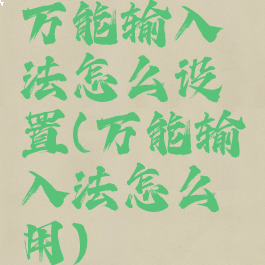 万能输入
法怎么设
置(万能输
入法怎么
用)